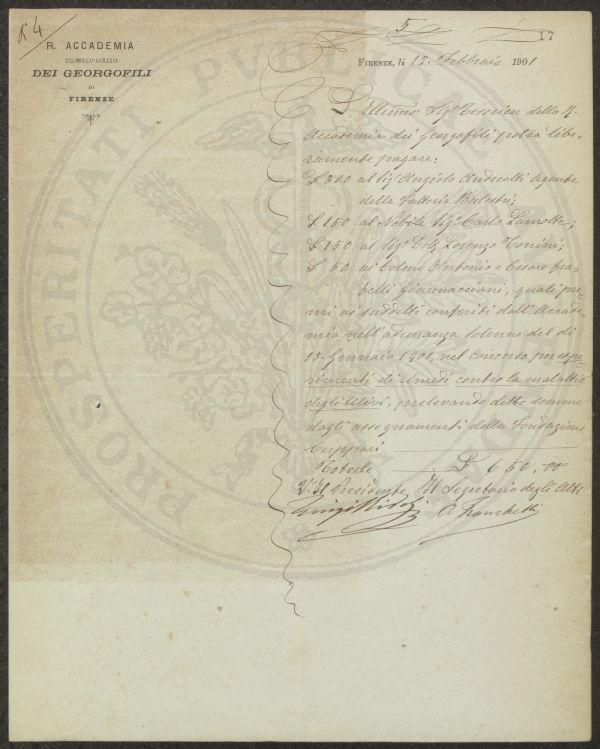 R. ACCADEMIA
ECONOMICO-AGRARIA
DEI GEORGOFILI
DI
FIRENZE
5
17
FIRENZE, li 12 Febbraio 1901
L'Illmo Sigr Tesoriere della R.
Accademia dei Georgofili potrà libe-
ramente pagare:
£ 300 al Sigr Angiolo Andreotti Agente
della Fattoria
£ 150 al Nobile Sigr Carlo
£ 150 al Sigr Dott Lorenzo Tonini;
£ 50 ai Coloni Antonio e Cesare fra-
telli Giannaccini, quali pre-
mi ai suddetti conferiti dall'Accade-
mia nell'adunanza solenne del dì
Gennaio 1901, nel Concorso per espe-
rimenti di rimedi contro la malattia
degli Ulivi, prelevando dette somme
dagli assegnamenti della Fondazione
Cuppari
Totale £ 650,00
Vo Il Presidente Il Segretario degli Atti
Luigi Ridolfi A Franchetti
PROSPERITATI PUBLICAE